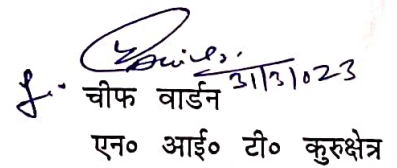 31/3/023
चीफ वार्डन
एन० आई० टी० कुरुक्षेत्र